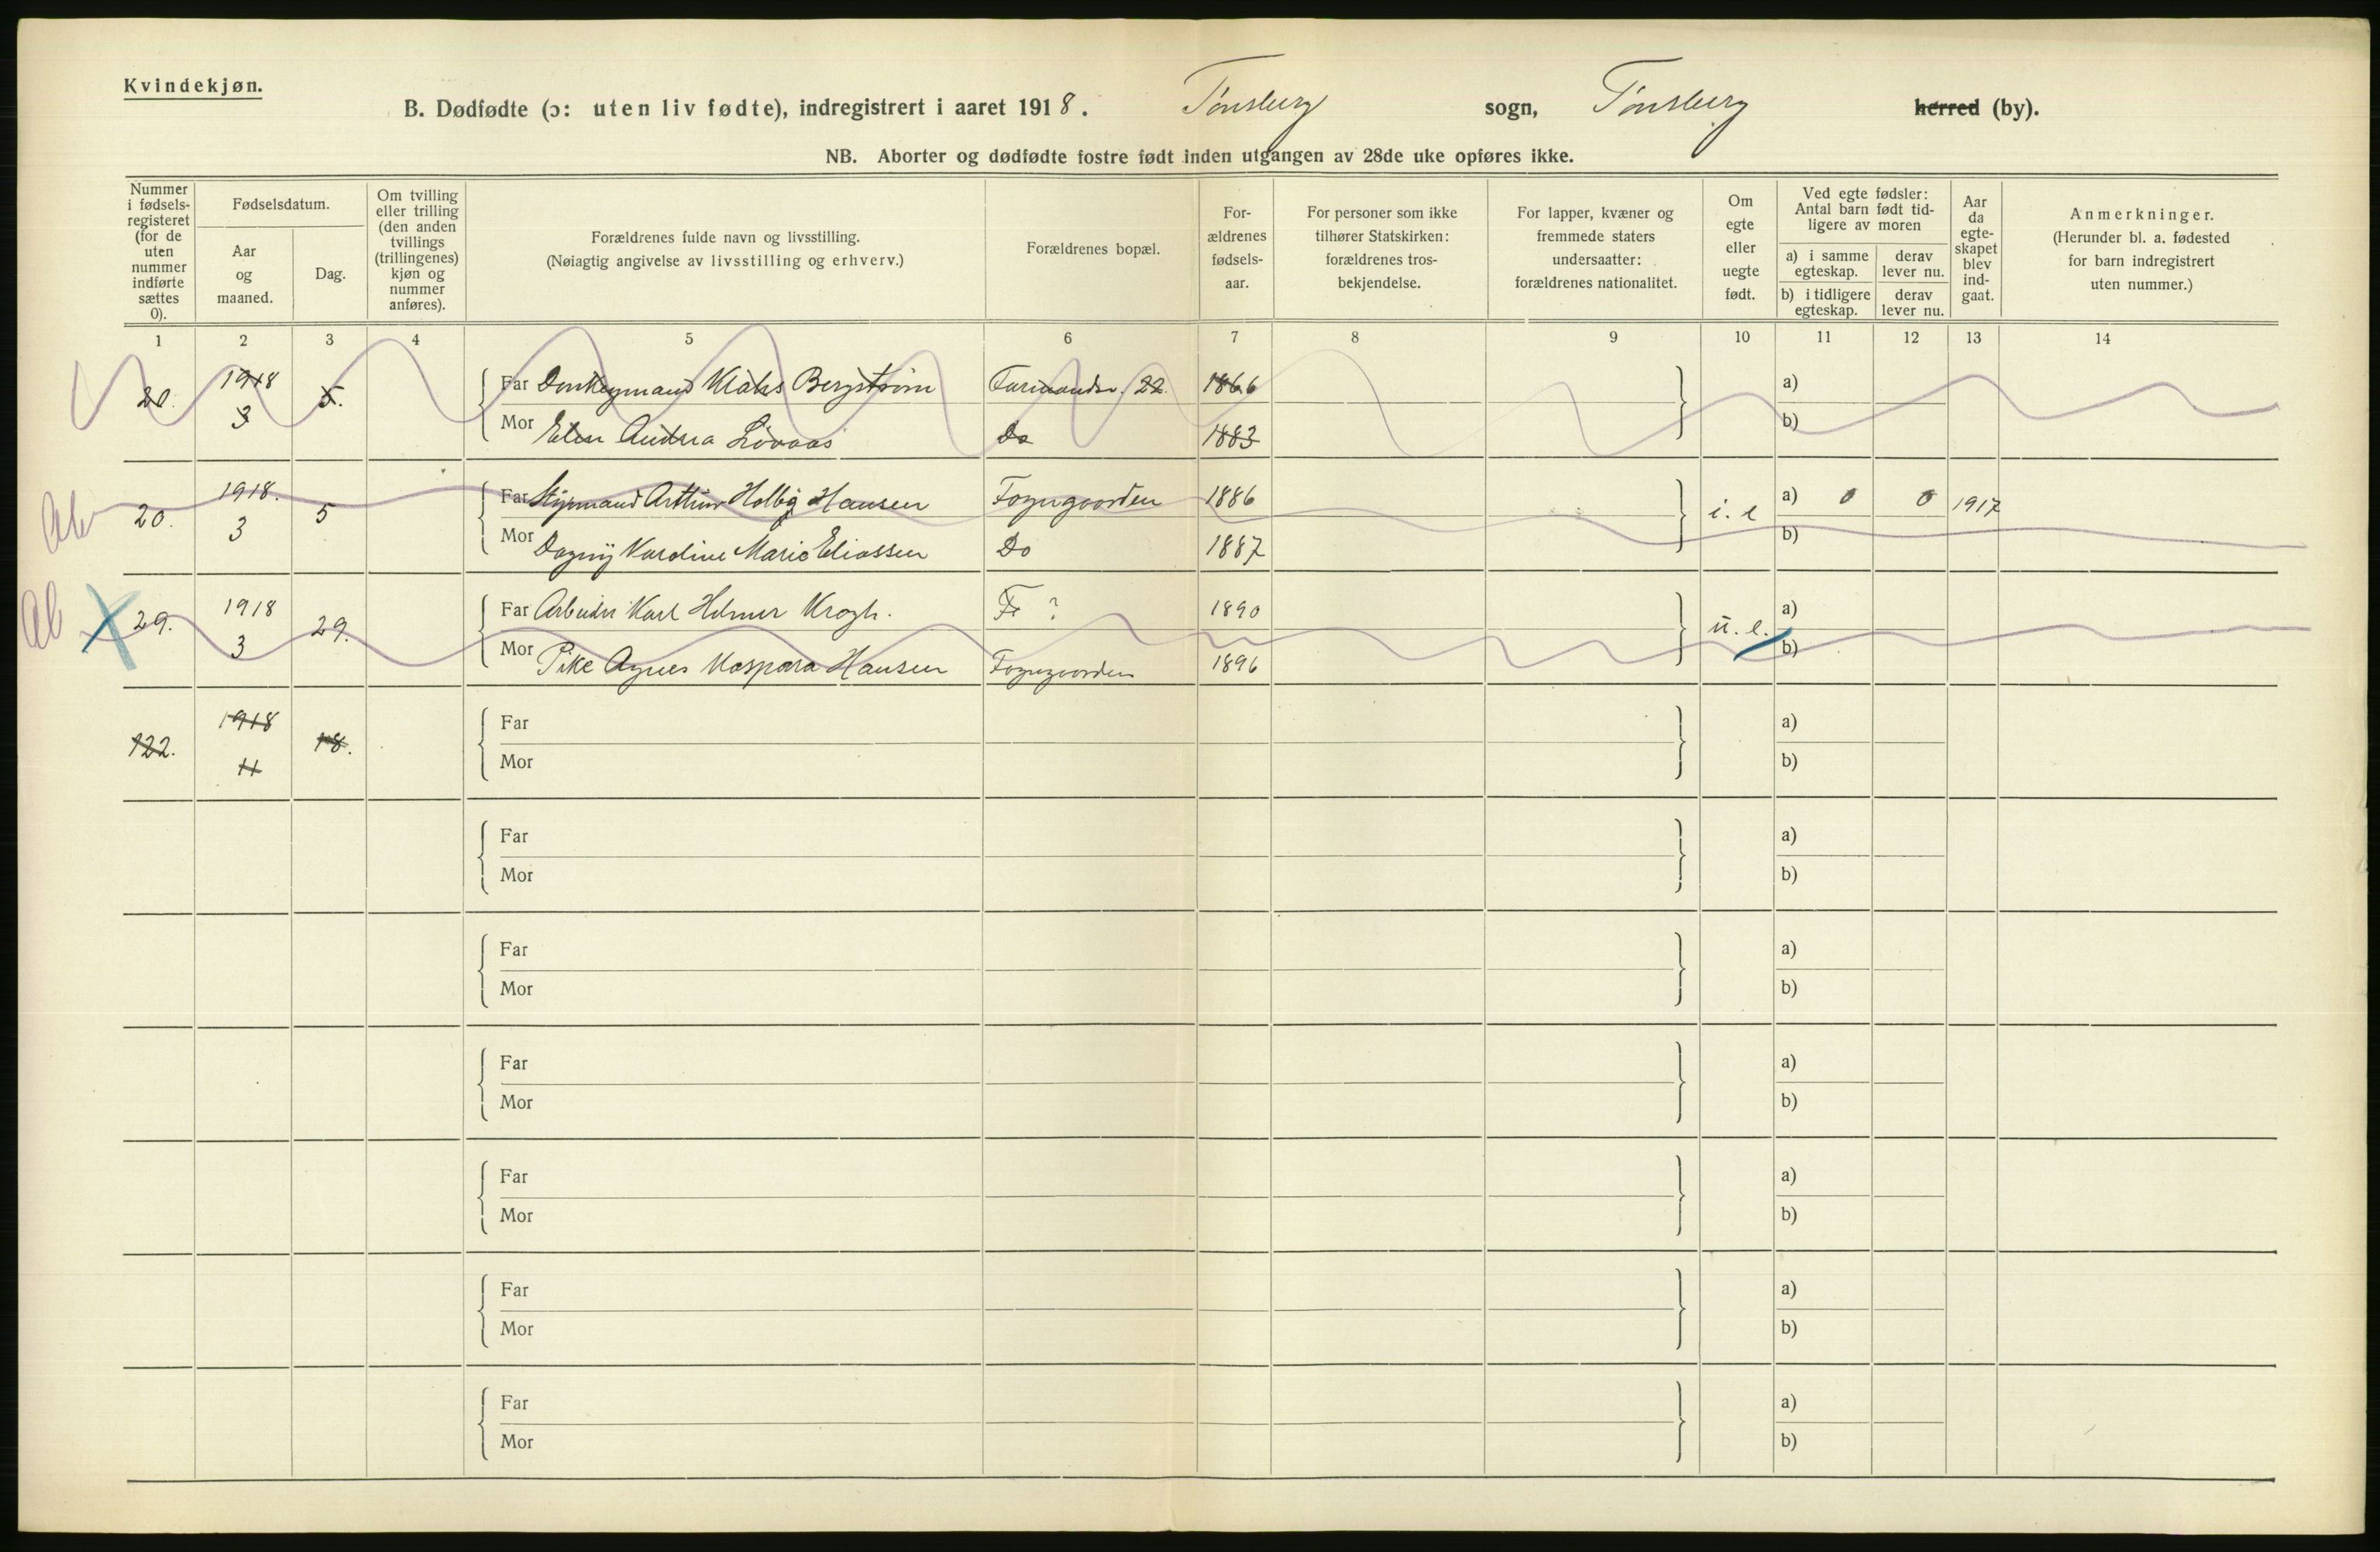 Kvindekjøn.
B. Dødfødte (ɔ: uten liv fødte), indregistrert i aaret 1918. Tønsberg sogn, Tønsberg herred (by).
NB. Aborter og dødfødte fostre født inden utgangen av 28de uke opføres ikke.
Nummer i fødsels-registeret (for de uten nummer indførte sættes 0).
Fødselsdatum.
Aar og maaned.
Dag.
Om tvilling eller trilling (den anden tvillings (trillingenes) kjøn og nummer anføres).
Forældrenes fulde navn og livsstilling.
(Nøiagtig angivelse av livsstilling og erhverv.)
Forældrenes bopæl.
For-ældrenes fødsels-aar.
For personer som ikke tilhører Statskirken: forældrenes tros-bekjendelse.
For lapper, kvæner og fremmede staters undersaatter: forældrenes nationalitet.
Om egte eller uegte født.
Ved egte fødsler: Antal barn født tid-ligere av moren
a) i samme egteskap.
derav lever nu.
b) i tidligere egteskap.
derav lever nu.
Aar da egte-skapet blev ind-gaat.
Anmerkninger.
(Herunder bl. a. fødested for barn indregistrert uten nummer.)
1 2 3 4 5 6 7 8 9 10 11 12 13 14
20. 1918 3 5.
Far Donkeymand Klaus Bergstrøm 22. 1866 a)
Mor Elen Andrea Løvaas Do 1883 b)
Ab 20. 1918. 3 5
Far Styrmand Arthur Holbg Hansen Fogngaarden 1886 i. e a) 0 0 1917
Mor Dagny Karoline Marie Eliassen Do 1887 b)
Ab 29. 1918 3 29.
Far Arbeider Karl Helmer Krogh. Fr ? 1890 u. e. a)
Mor Pike Agnes Kaspara Hansen Fogngaarden 1896 b)
122. 1918 11 18.
Far a)
Mor b)
Far a)
Mor b)
Far a)
Mor b)
Far a)
Mor b)
Far a)
Mor b)
Far a)
Mor b)
Far a)
Mor b)